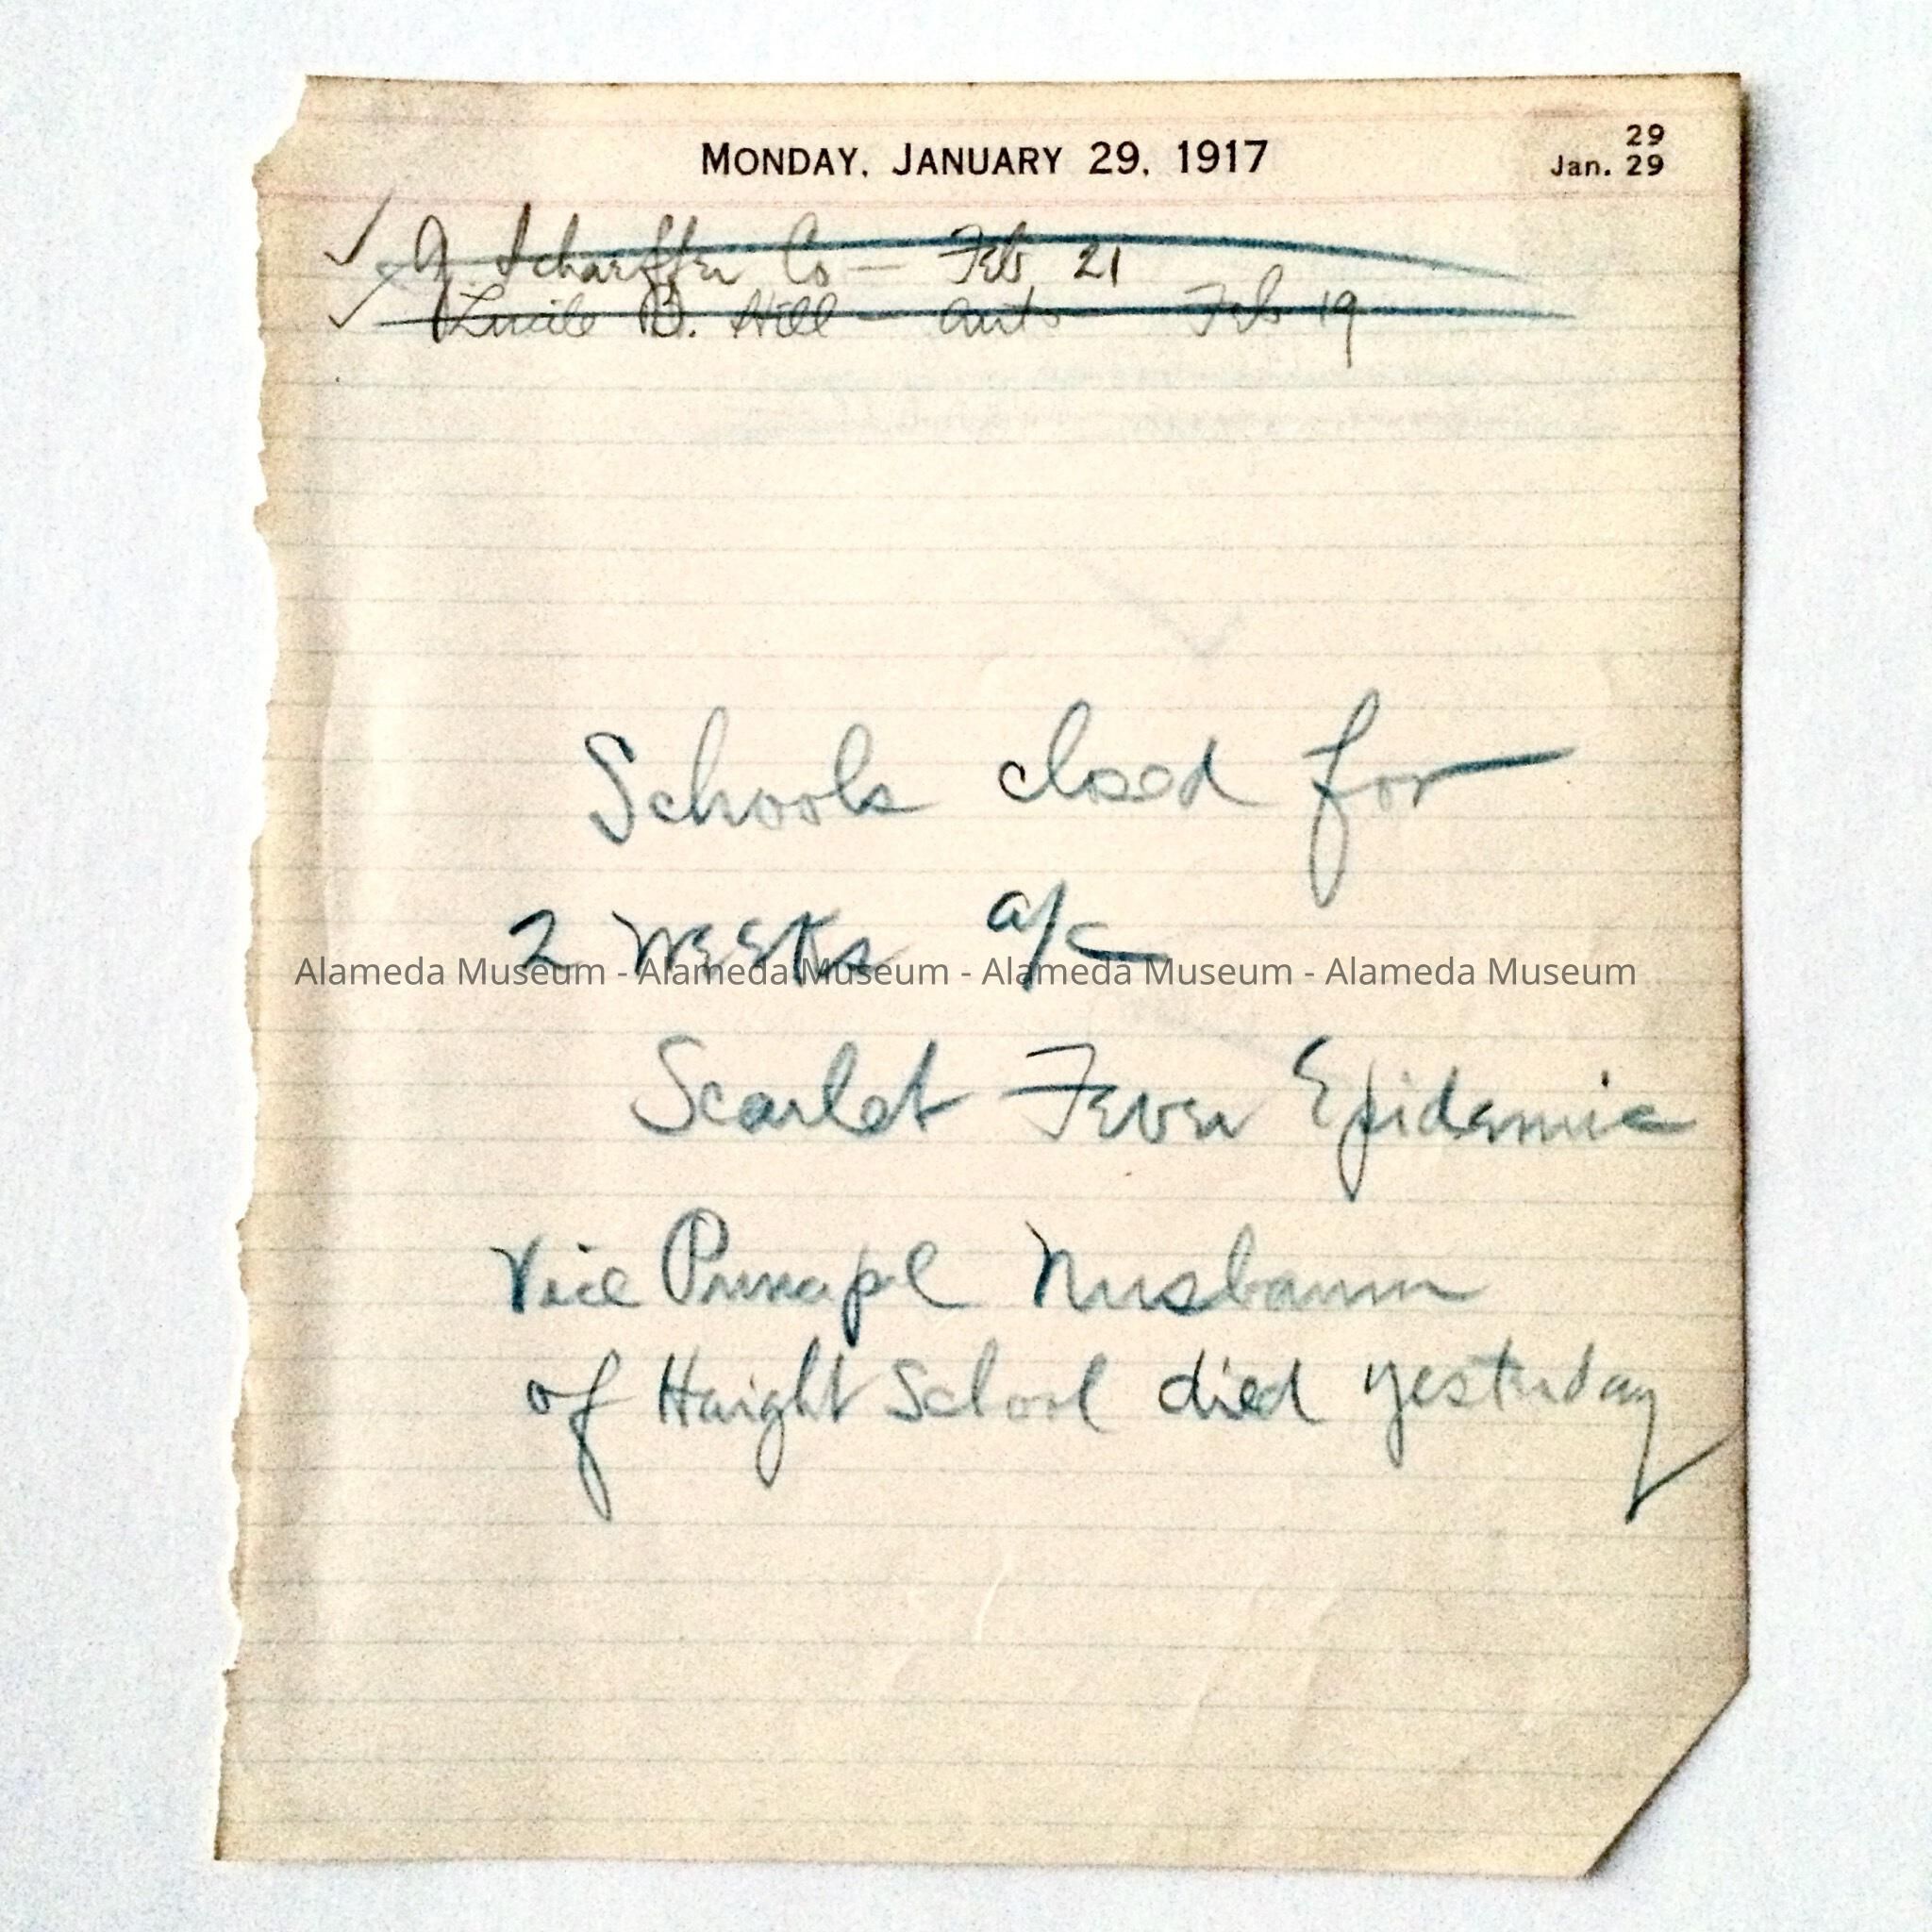 MONDAY, JANUARY 29, 1917
29
Jan. 29
Scharffen Co — Feb 21
Lucile B. Hill — auto — Feb 19
Schools closed for
2 weeks a/c
Alameda Museum - Alameda Museum - Alameda Museum - Alameda Museum
Scarlet Fever Epidemic
Vice Principl Nusbaum
of Haight School died yesterday